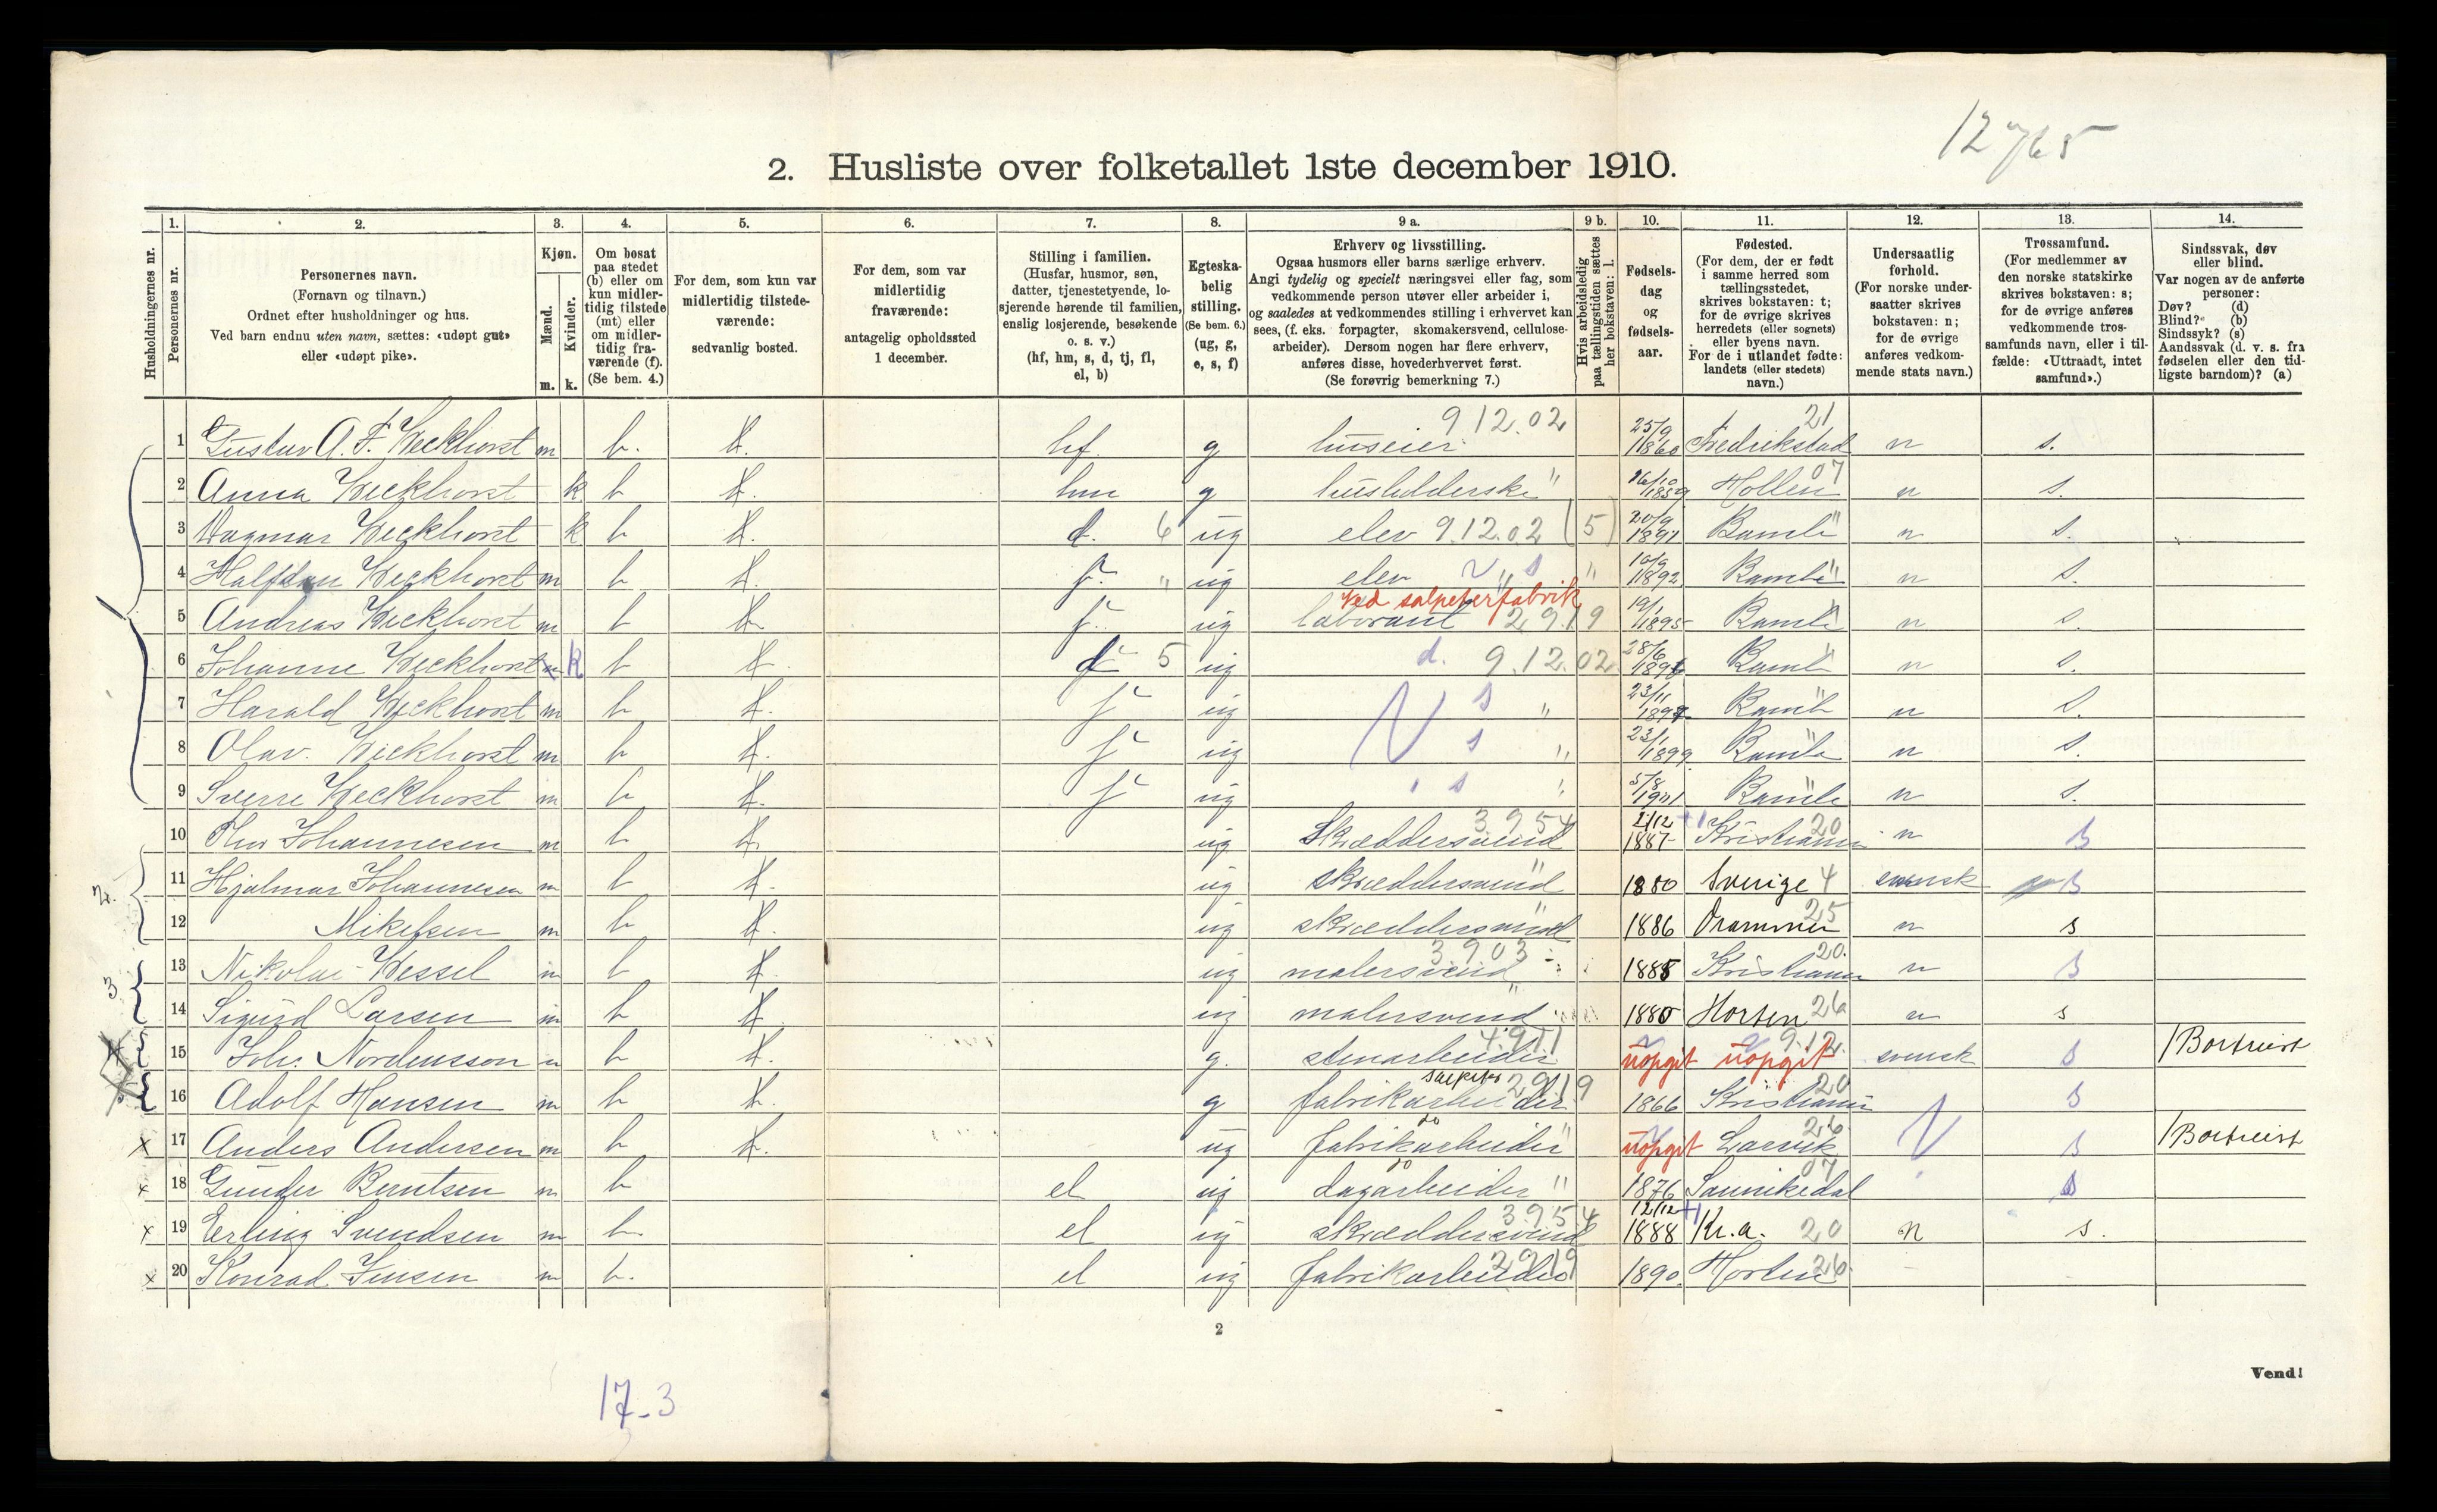 12765
2. Husliste over folketallet 1ste december 1910.
1. 2. 3. 4. 5. 6. 7. 8. 9 a. 9 b. 10. 11. 12. 13. 14.
Husholdningernes nr.
Personernes nr.
Personernes navn.
(Fornavn og tilnavn.)
Ordnet efter husholdninger og hus.
Ved barn endnu uten navn, sættes: «udøpt gut»
eller «udøpt pike».
Kjøn.
Mænd.
Kvinder.
m. k.
Om bosat
paa stedet
(b) eller om
kun midler-
tidig tilstede
(mt) eller
om midler-
tidig fra-
værende (f).
(Se bem. 4.)
For dem, som kun var
midlertidig tilstede-
værende:
sedvanlig bosted.
For dem, som var
midlertidig
fraværende:
antagelig opholdssted
1 december.
Stilling i familien.
(Husfar, husmor, søn,
datter, tjenestetyende, lo-
sjerende hørende til familien,
enslig losjerende, besøkende
o. s. v.)
(hf, hm, s, d, tj, fl,
el, b)
Egteska-
belig
stilling.
(Se bem. 6.)
(ug, g,
e, s, f)
Erhverv og livsstilling.
Ogsaa husmors eller barns særlige erhverv.
Angi tydelig og specielt næringsvei eller fag, som
vedkommende person utøver eller arbeider i,
og saaledes at vedkommendes stilling i erhvervet kan
sees, (f. eks. forpagter, skomakersvend, cellulose-
arbeider). Dersom nogen har flere erhverv,
anføres disse, hovederhvervet først.
(Se forøvrig bemerkning 7.)
Hvis arbeidsledig
paa tællingstiden sættes
her bokstaven: l.
Fødsels-
dag
og
fødsels-
aar.
Fødested.
(For dem, der er født
i samme herred som
tællingsstedet,
skrives bokstaven: t;
for de øvrige skrives
herredets (eller sognets)
eller byens navn.
For de i utlandet fødte:
landets (eller stedets)
navn.)
Undersaatlig
forhold.
(For norske under-
saatter skrives
bokstaven: n;
for de øvrige
anføres vedkom-
mende stats navn.)
Trossamfund.
(For medlemmer av
den norske statskirke
skrives bokstaven: s;
for de øvrige anføres
vedkommende tros-
samfunds navn, eller i til-
fælde: «Uttraadt, intet
samfund».)
Sindssvak, døv
eller blind.
Var nogen av de anførte
personer:
Døv? (d)
Blind? (b)
Sindssyk? (s)
Aandssvak (d. v. s. fra
fødselen eller den tid-
ligste barndom)? (a)
1 Gustav A. F. Weckhorst m b. hf. g huseier 912.02 25/9 1860 Fredrikstad 21 n s.
2 Anna Weckhorst k b hm g husholderske " 26/10 1859 Hollen 07 n s.
3 Dagmar Weckhorst k b d. 6 ug elev 9.12.02 (5) 20/9 1891 Bamle " n s.
4 Halfdan Weckhorst m b s. " ug elev s " 10/9 1892 Bamle " n s.
ved salpeterfabrik
5 Andreas Weckhorst m b s. ug laborant 2919 19/1 1895 Bamle n s.
6 Johanne Weckhorst k b d 5 ug d. 9.12.02 28/6 Bamle " n s.
7 Harald Weckhorst m b s ug s " 23/11 1897 Bamle " n s.
8 Olav. Weckhorst m b s ug s " 23/1 1899 Bamle " n s.
9 Sverre Weckhorst m b s ug " s " 5/8 1901 Bamle " n s.
10 Thor Johannesen m b ug Skræddersvend 3954 2/12 1887 Kristiania 20 n s
2. 11 Hjalmar Johannesen m b ug skræddersvend " 1880 Sverige 4 svensk s
12 Mikelsen m b ug skræddersvend " 1886 Drammen 25 n s
3 13 Nikolai Wessel m b ug malersvend 3903 1885 Kristiania 20. n s
14 Sigurd Larsen m b ug malersvend " 1880 Horten 26 n s
15 Joh. Nordensson m b g. stenarbeider 4.911 uopgit uopgit 9.12. svensk s / Bortreist
16 Adolf Hansen m b g salpeter fabrikarbeider 2919 1866 Kristiania 20 s
x 17 Anders Andersen m b ug do fabrikarbeider " uopgit Larvik 26 s / Bortreist
x 18 Gunder Berntsen m b el ug do dagarbeider " 1876 Sannikedal 07 s
x 19 Erling Svendsen m b. el ug skræddersvend 3954 12/12 1888 Kr.a. 20 n s.
x 20 Konrad Jensen m b. el ug fabrikarbeider 2919 1890. Horten 26
2
Vend!
17-3